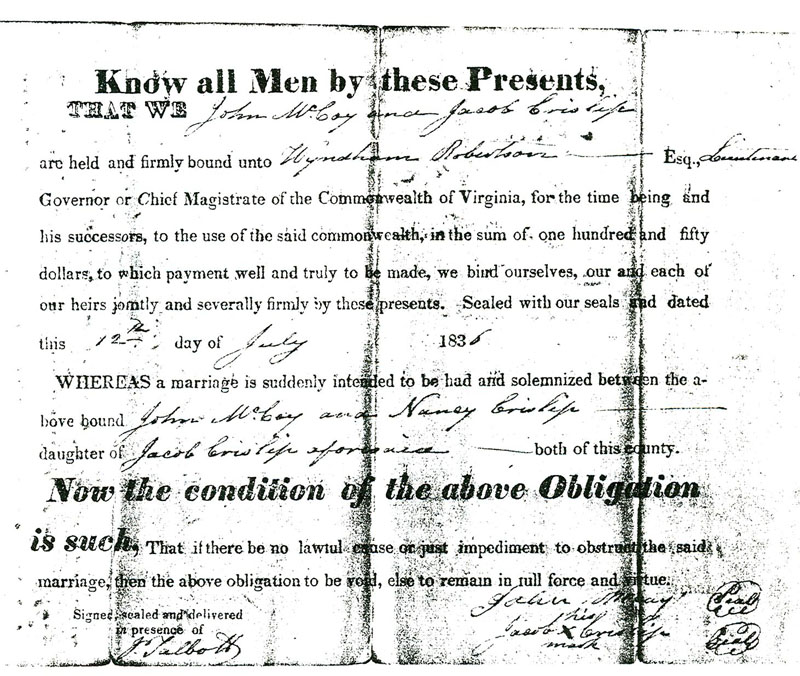 Know all Men by these Presents,
THAT WE John McCoy and Jacob Crislip
are held and firmly bound unto Wyndham Robertson Esq., Lieutenant
Governor or Chief Magistrate of the Commonwealth of Virginia, for the time being and
his successors, to the use of the said commonwealth, in the sum of one hundred and fifty
dollars, to which payment well and truly to be made, we bind ourselves, our and each of
our heirs jointly and severally firmly by these presents. Sealed with our seals and dated
this 12th day of July 1836
WHEREAS a marriage is suddenly intended to be had and solemnized between the a-
bove bound John McCoy and Nancy Crislip
daughter of Jacob Crislip aforesaid both of this county.
Now the condition of the above Obligation
is such, That if there be no lawful cause or just impediment to obstruct the said
marriage, then the above obligation to be void, else to remain in full force and virtue.
Signed, sealed and delivered
in presence of
J. Talbott
John McCoy Seal
his
Jacob X Crislip Seal
mark